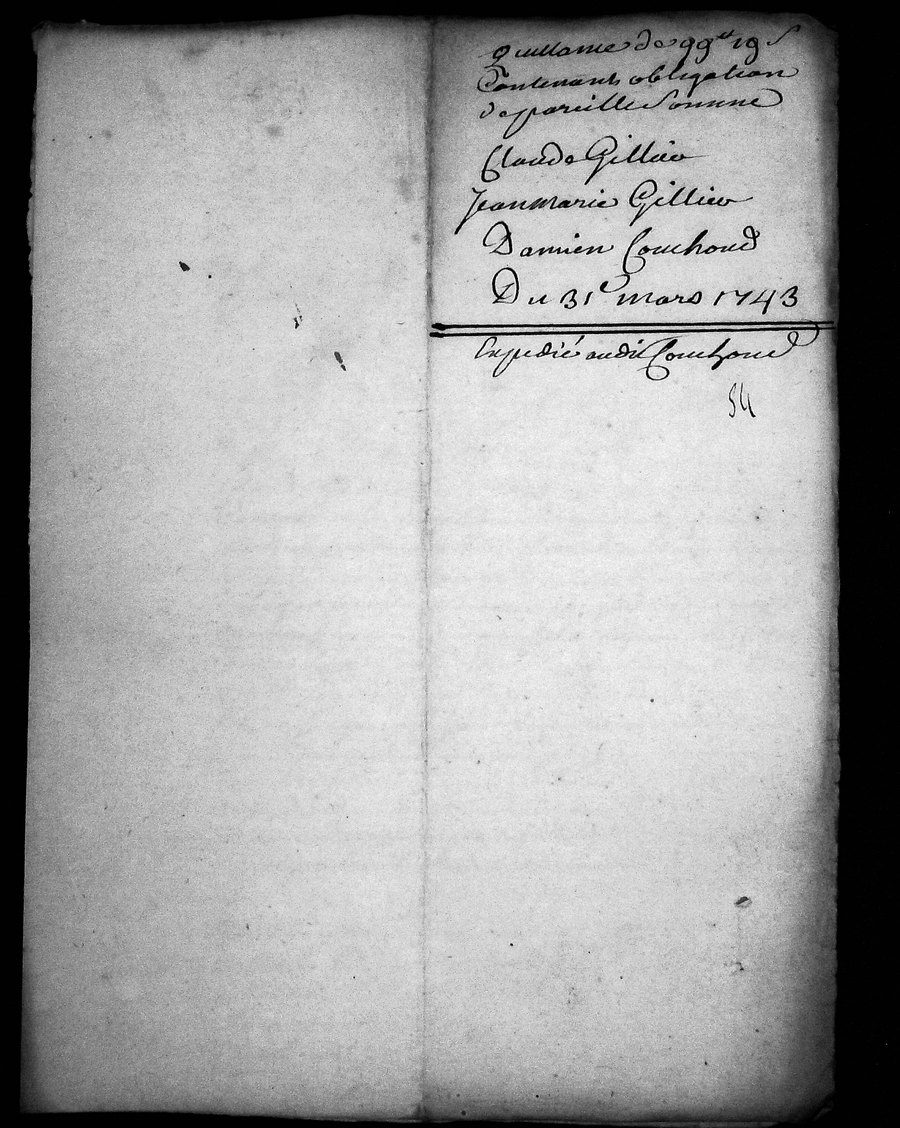 quittance de 99tt 19 s
Contenant obligation
de pareille somme
Claude Gillier
Jean Marie Gillier
Damien Couchoud
Du 31e mars 1743
Expedié audit Couchoud